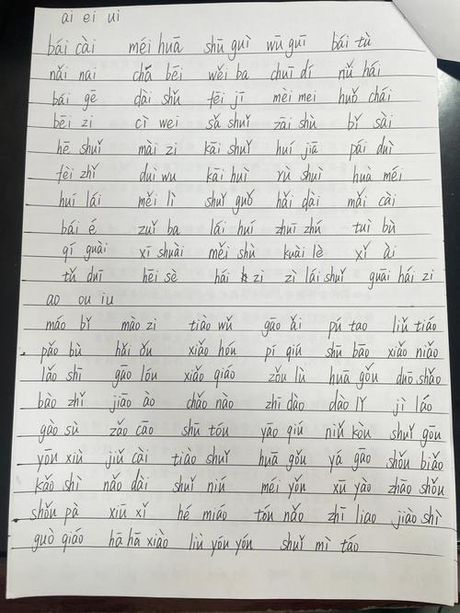 ai ei ui
bái cài méi huā shū guì wū guī bái tù
nǎi nai chá bēi wěi ba chuī dí nǚ hái
bái gē dài shǔ fēi jī mèi mei huǒ chái
bēi zi cì wei sǎ shuǐ zāi shù bǐ sài
hē shuǐ mài zi kāi shuǐ huí jiā pái duì
fèi zhǐ duì wu kāi huì rù shuì huà méi
huí lái měi lì shuǐ guǒ hǎi dài mǎi cài
bái é zuǐ ba lái huí zhuī zhú tuì bù
qí guài xī shuài měi shù kuài lè xǐ ài
tǔ duī hēi sè hái zi zì lái shuǐ guāi hái zi
ao ou iu
máo bǐ mào zi tiào wǔ gāo ǎi pú tao liǔ tiáo
pǎo bù hǎi ǒu xiǎo hóu pí qiú shū bāo xiǎo niǎo
lǎo shī gāo lóu xiǎo qiáo zǒu lù huā gǒu duō shǎo
bào zhǐ jiāo ào chǎo nào zhī dào dào lǐ jì láo
gào sù zǎo cāo shū tóu yāo qiú niǔ kòu shuǐ gōu
yōu xiù jiǔ cài tiào shuǐ huā gǒu yá gāo shǒu biǎo
kǎo shì nǎo dài shuǐ niú méi yǒu xū yào zhāo shǒu
shǒu pà xiū xǐ hé miáo tóu nǎo zhī liao jiào shì
guò qiáo hā hā xiào liù yóu yóu shuǐ mì táo